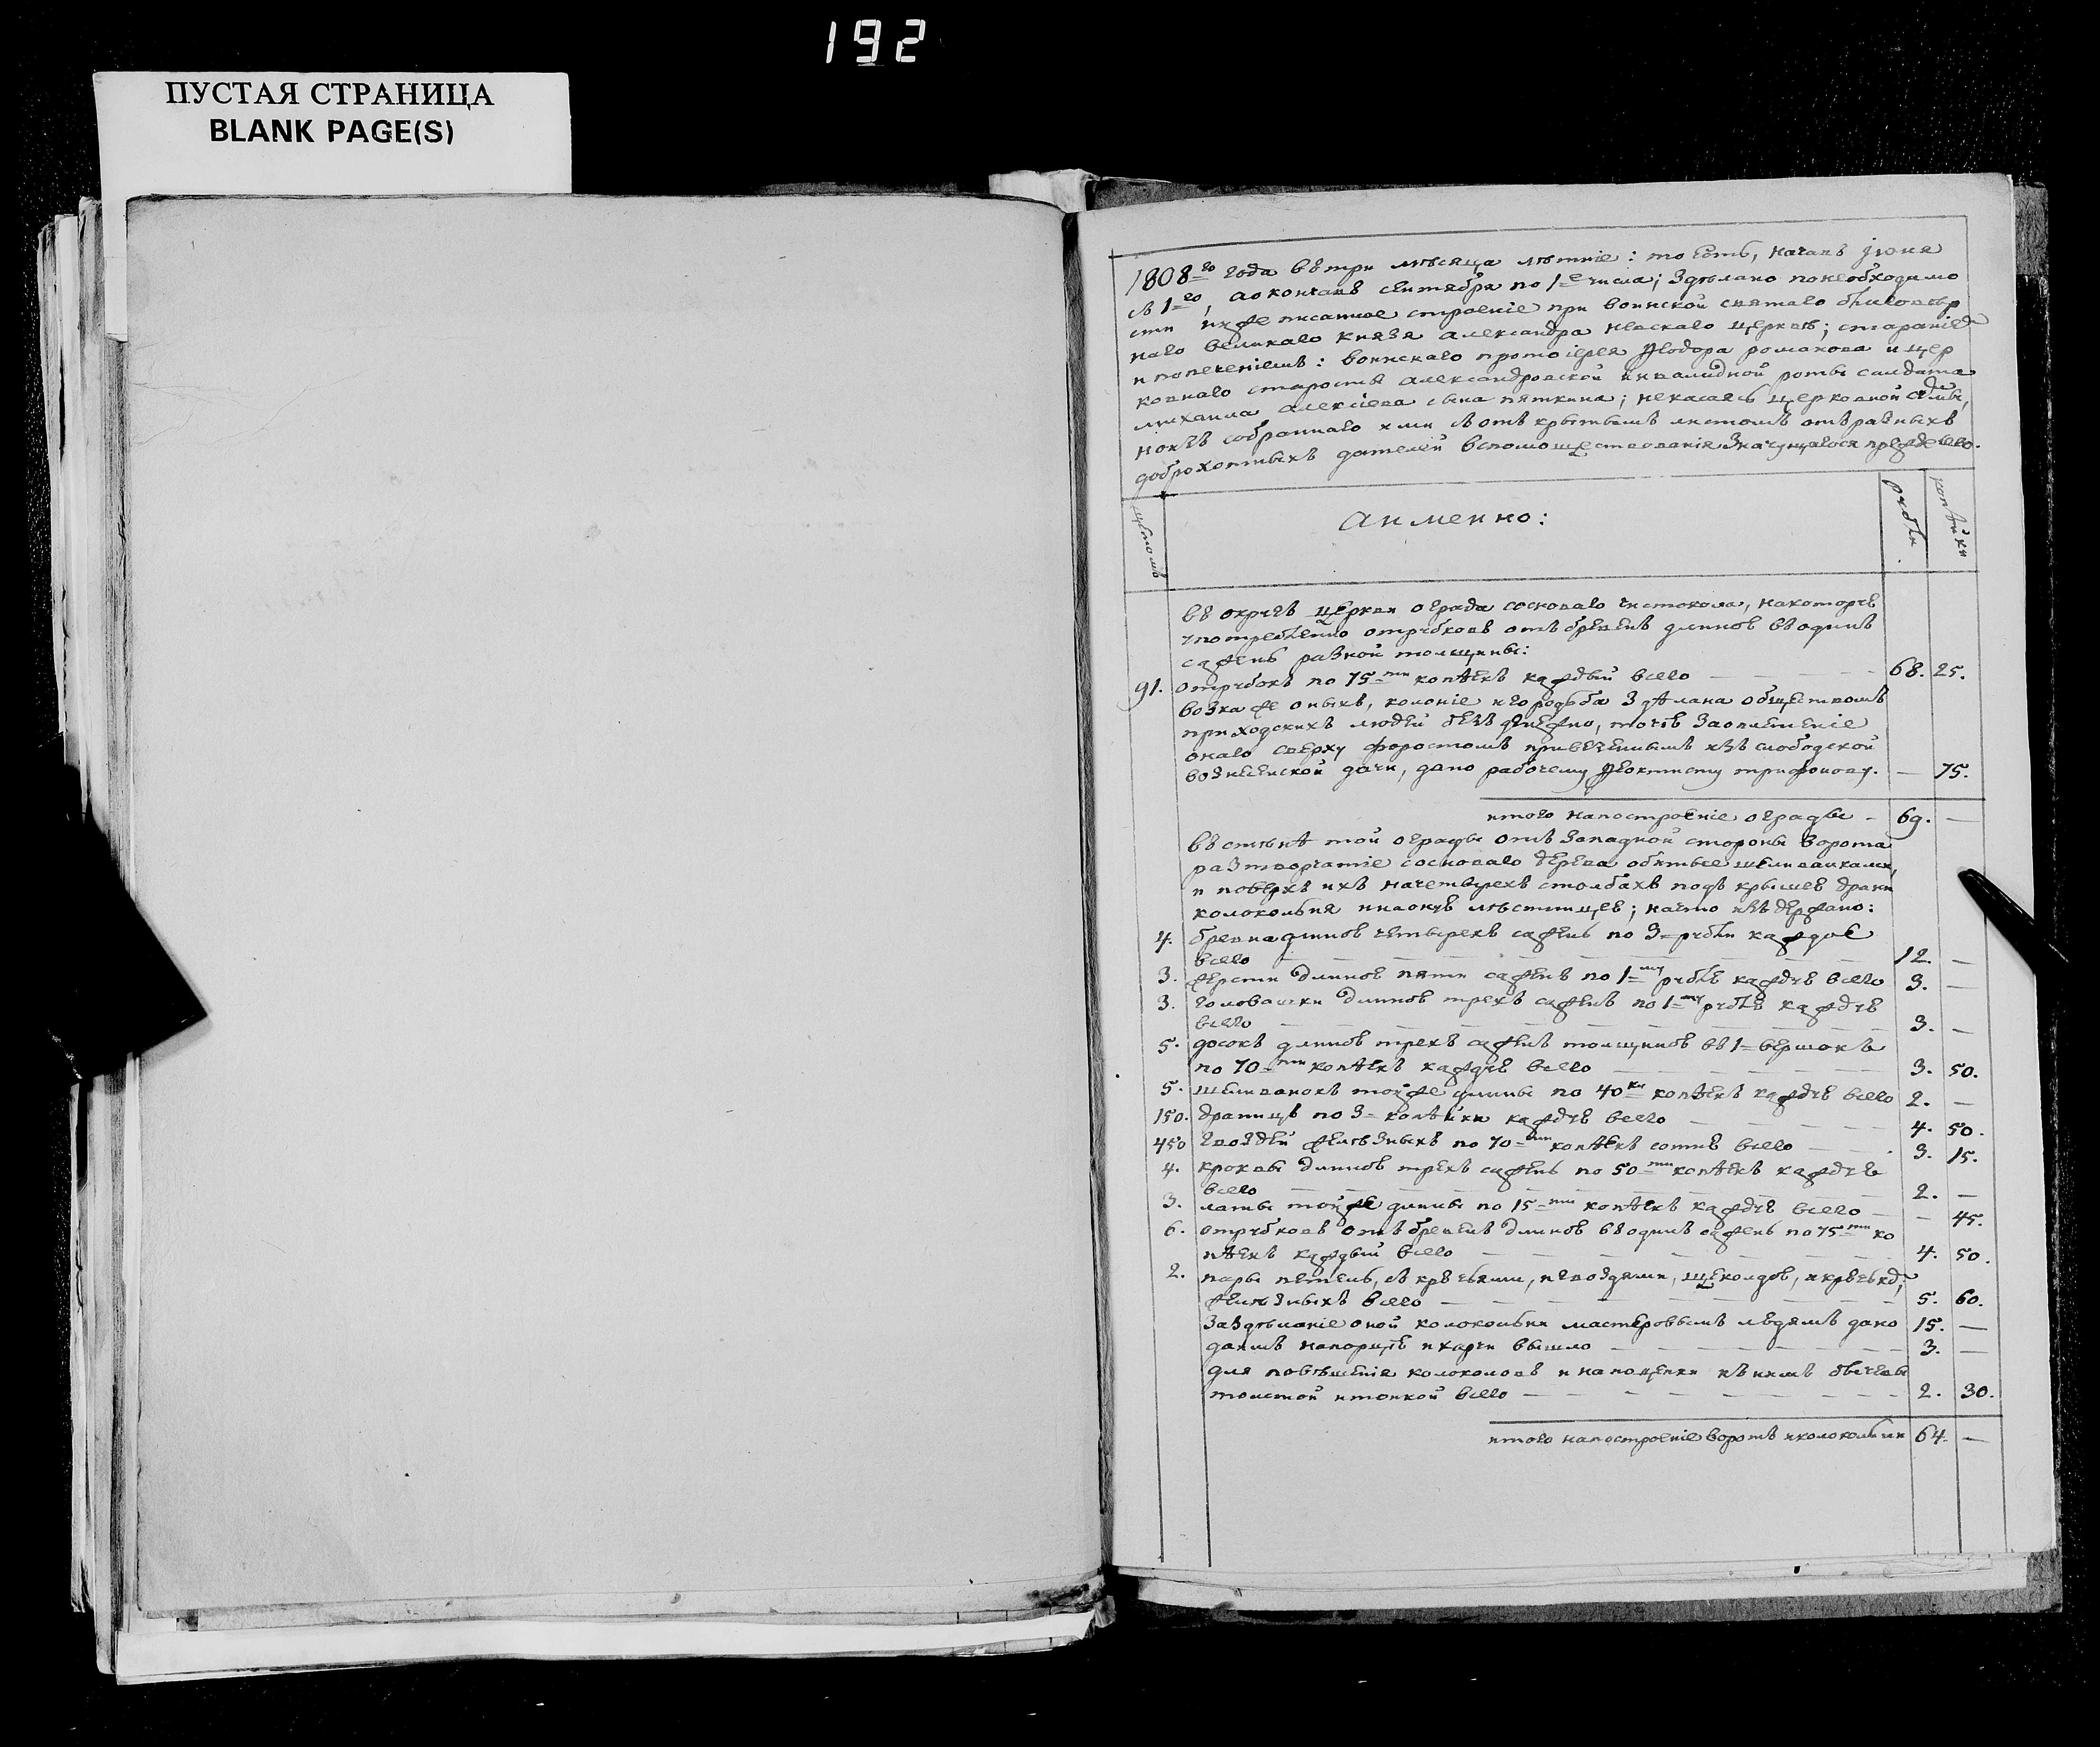 192
ПУСТАЯ СТРАНИЦА
BLANK PAGE(S)
1808го года въ три мѣсяца лѣтніе: то есть, начавъ іюня
съ 1го, а окончавъ сентября по 1е числа; здѣлано понеобходимо
сти нижеписанное строеніе при воинской святаго благовѣр
наго великаго князя александра невскаго церквѣ; стараніе
и попеченіемъ: воинскаго протоіерея Ѳеодора романова и цер
ковнаго старосты александровской инвалидной роты салдата
михаила алексіева сына пяткина; некасаясь церковной суммы,
но изъ собраннаго ими съ открытымъ листомъ отъ разныхъ
доброхотныхъ дателей вспомоществованія значущагося прежде сего.
щетомъ
а именно:
рубли
копѣйки
въ округъ церкви ограда сосноваго частокола, на которую
употреблено отрубковъ отъ бревенъ длиною въ одинъ
сажень разной толщины:
91. отрубокъ по 75ти копѣекъ каждый всего 68. 25.
возка же оныхъ, колоніе и городьба здѣлана обществомъ
приходскихъ людей безъ денежно, точію за оплетеніе
онаго сверху форостомъ привезеннымъ изъ слободской
вознесенской дачи, дано рабочему Ѳеоктисту трифонову. — 75.
итого на построеніе ограды — 69. —
въ стѣнѣ той ограды отъ западной стороны ворота
разтворчатіе сосноваго дерева обитые шелиовками,
и поверхъ ихъ на четырехъ столбахъ подъ крышею драни
колокольня и на оную лѣстницею; на что издержано:
4. бревна длиною четырехъ сажень по 3 рубли каждое
всего 12. —
3. жерсти длиною пяти сажень по 1му рублю каждую всего 3. —
3. головашки длиною трехъ сажень по 1му рублю каждую
всего 3. —
5. досокъ длиною трехъ сажень толщиною въ 1 вершокъ
по 70ти копѣекъ каждую всего 3. 50.
5. шелиовокъ той же длины по 40ка копѣекъ каждую всего 2. —
150. драницъ по 3 копѣйки каждую всего 4. 50.
450 гвоздей желѣзныхъ по 70ти копѣекъ сотню всего 3. 15.
4. кроквы длиною трехъ сажень по 50ти копѣекъ каждую
всего 2. —
3. латы той же длины по 15ти копѣекъ каждую всего — 45.
6. отрубковъ отъ бревенъ длиною въ одинъ сажень по 75ти ко
пѣекъ каждый всего 4. 50.
2. пары петель, съ крючьями, и гвоздями, щеколдою,
желѣзныхъ всего 5. 60.
за здѣланіе оной колокольни мастеровымъ людямъ дано 15. —
да имъ на порцію и харчи вышло 3. —
для повѣшенія колоколовъ и на поценки къ нимъ бичевы
толстой и тонкой всего 2. 30.
итого на построеніе воротъ и колокольни 64. —